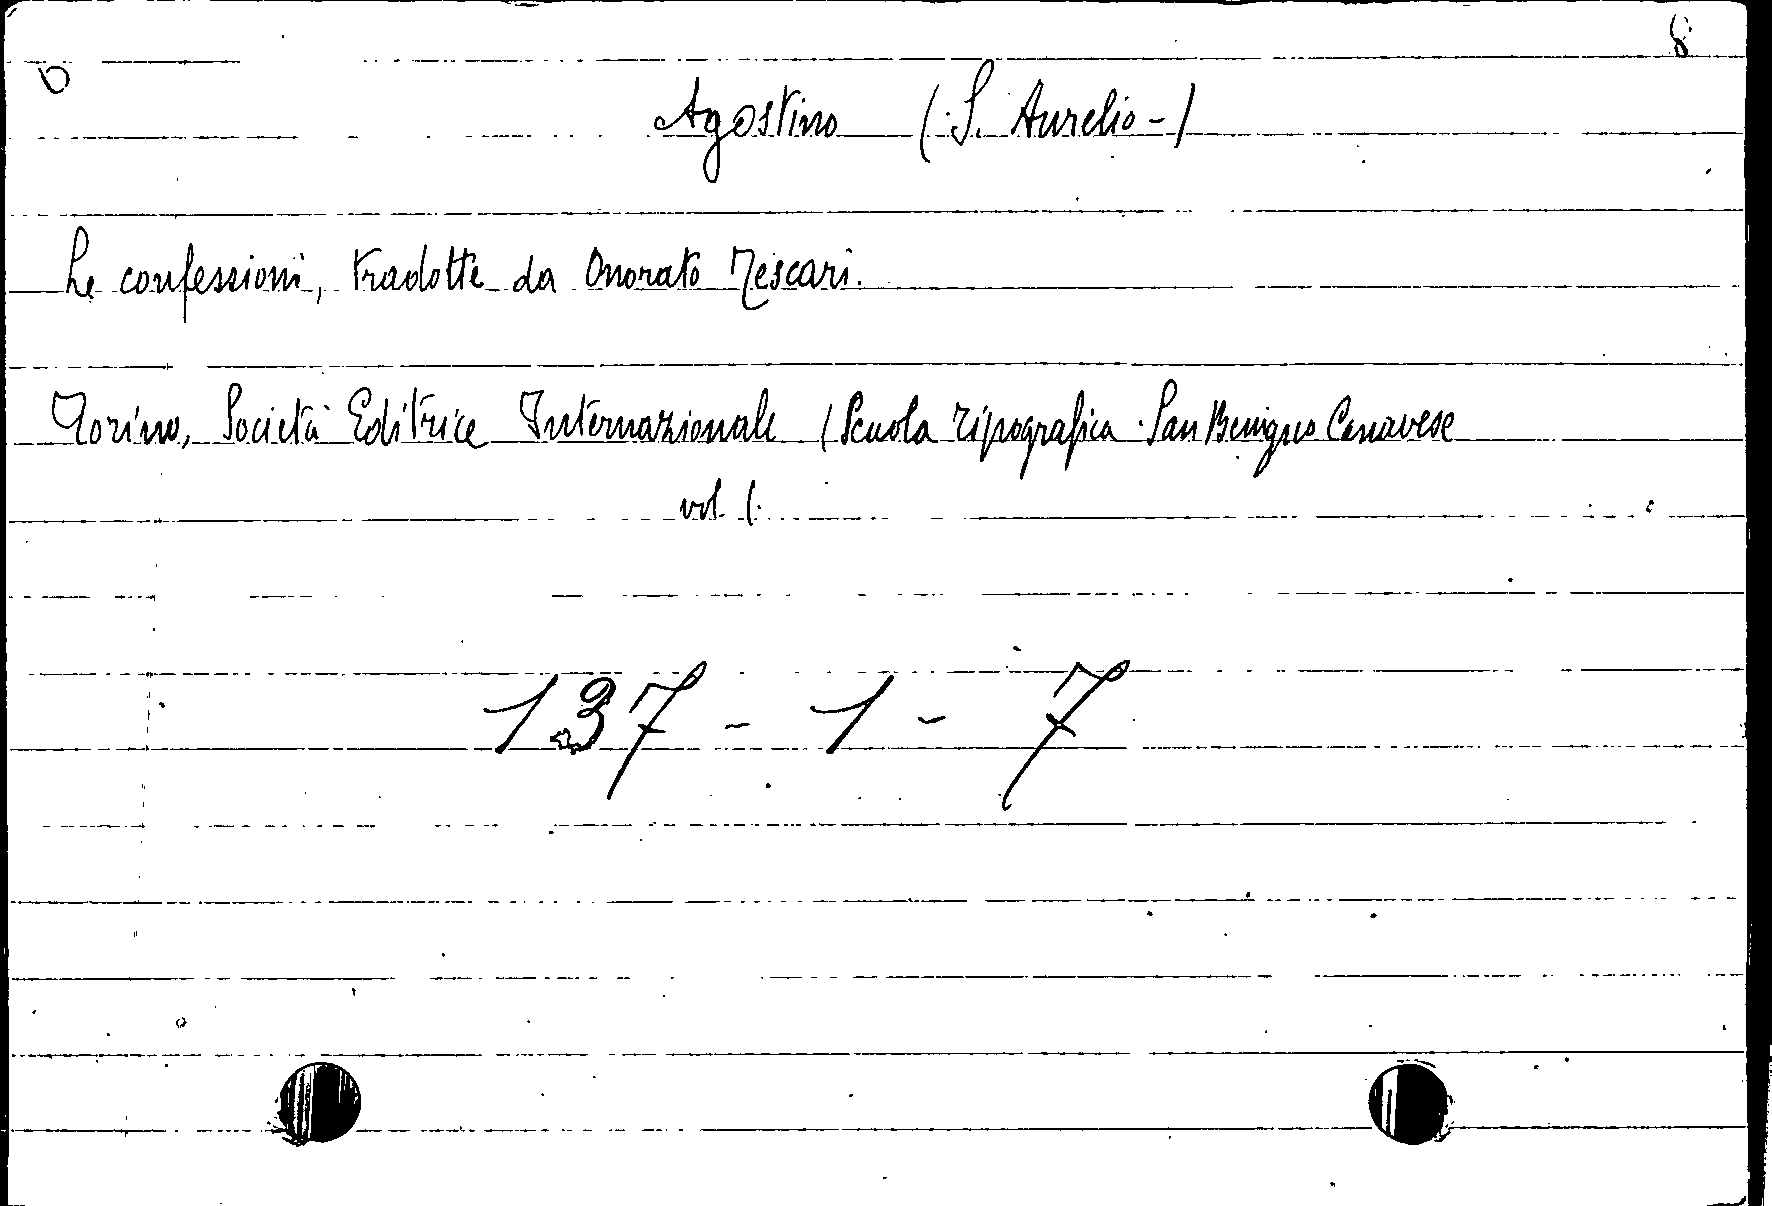 8
Agostino (S. Aurelio-)
Le confessioni, tradotte da Onorato Tescari.
Torino, Società Editrice Internazionale (Scuola Tipografica San Benigno Canavese
vol. 1.
137 - 1 - 7